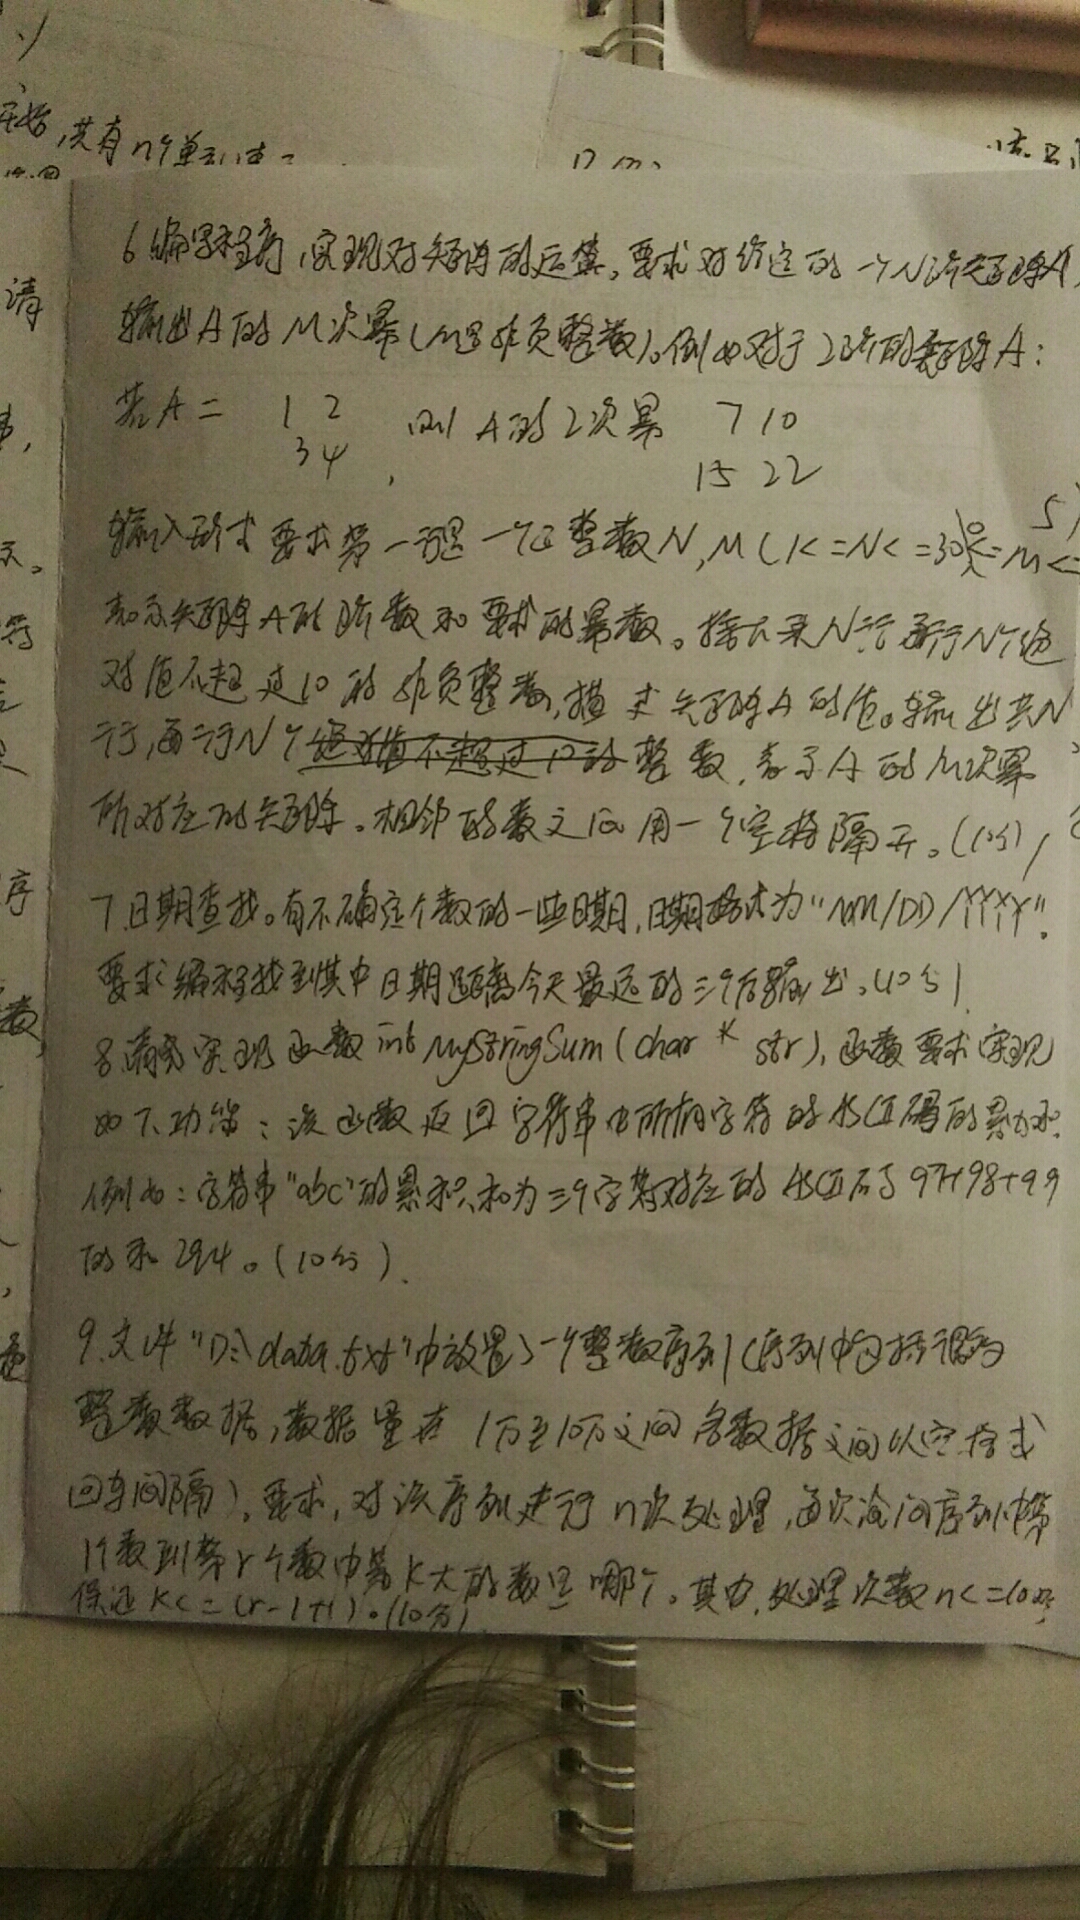 开始,共有n个单元
请
序
数
6编写程序,实现对矩阵的运算。要求对给定的一个N阶矩阵A,
输出A的M次幂(M是非负整数)。例如对于2阶的矩阵A:
若A= 1 2 ,则A的2次幂 7 10
3 4 15 22
输入形式要求第一行是一个正整数N,M(1<=N<=30,0<=M<=5)
表示矩阵A的阶数和要求的幂数。接下来N行每行N个绝
对值不超过10的非负整数,描述矩阵A的值。输出共N
行,每行N个整数,表示A的M次幂
所对应的矩阵。相邻的数之间用一个空格隔开。(10分)
7.日期查找。有不确定个数的一些日期,日期格式为"MM/DD/YYYY".
要求编程找到其中日期距离今天最远的三个后输出。(10分)
8.请完实现函数int MyStringSum(char * str),函数要求实现
如下功能:该函数返回字符串中所有字符的ASCII码的累加和.
例如:字符串"abc"的累积和为三个字符对应的ASCII码97+98+99
的和294。(10分).
9.文件"D:\data.txt"中放置了一个整数序列(序列中包括很多
整数数据,数据量在1万至10万之间各数据之间以空格或
回车间隔)。要求,对该序列进行n次处理,每次询问序列中第
l个数到第r个数中第K大的数是哪个。其中,处理次数n<=
保证K<=(r-l+1)。(10分)